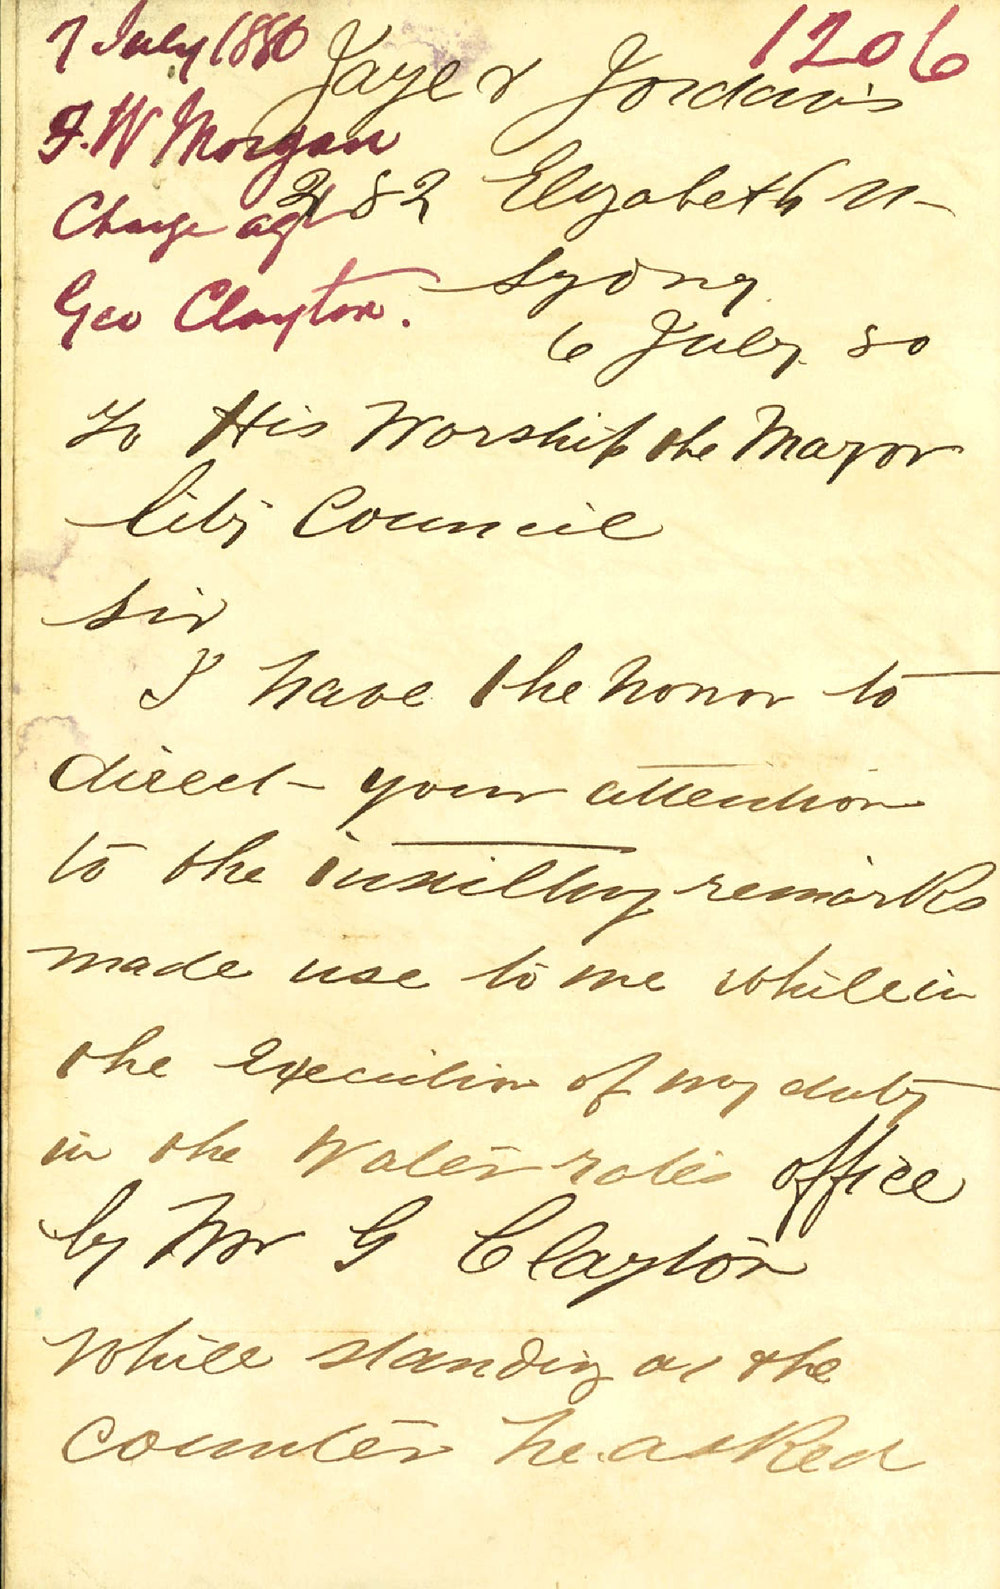 7 July 1880
1206
F. W Morgan
Charge agt
Geo Clayton.
Jaye & Jordan's
282 Elizabeth St
Sydny
6 July 80
To His Worship the Mayor
City Council
Sir
I have the honor to
direct your attention
to the insulting remarks
made use to me while in
the execution of my duty
in the Water rates office
by Mr G Clayton
While standing at the
counter he asked